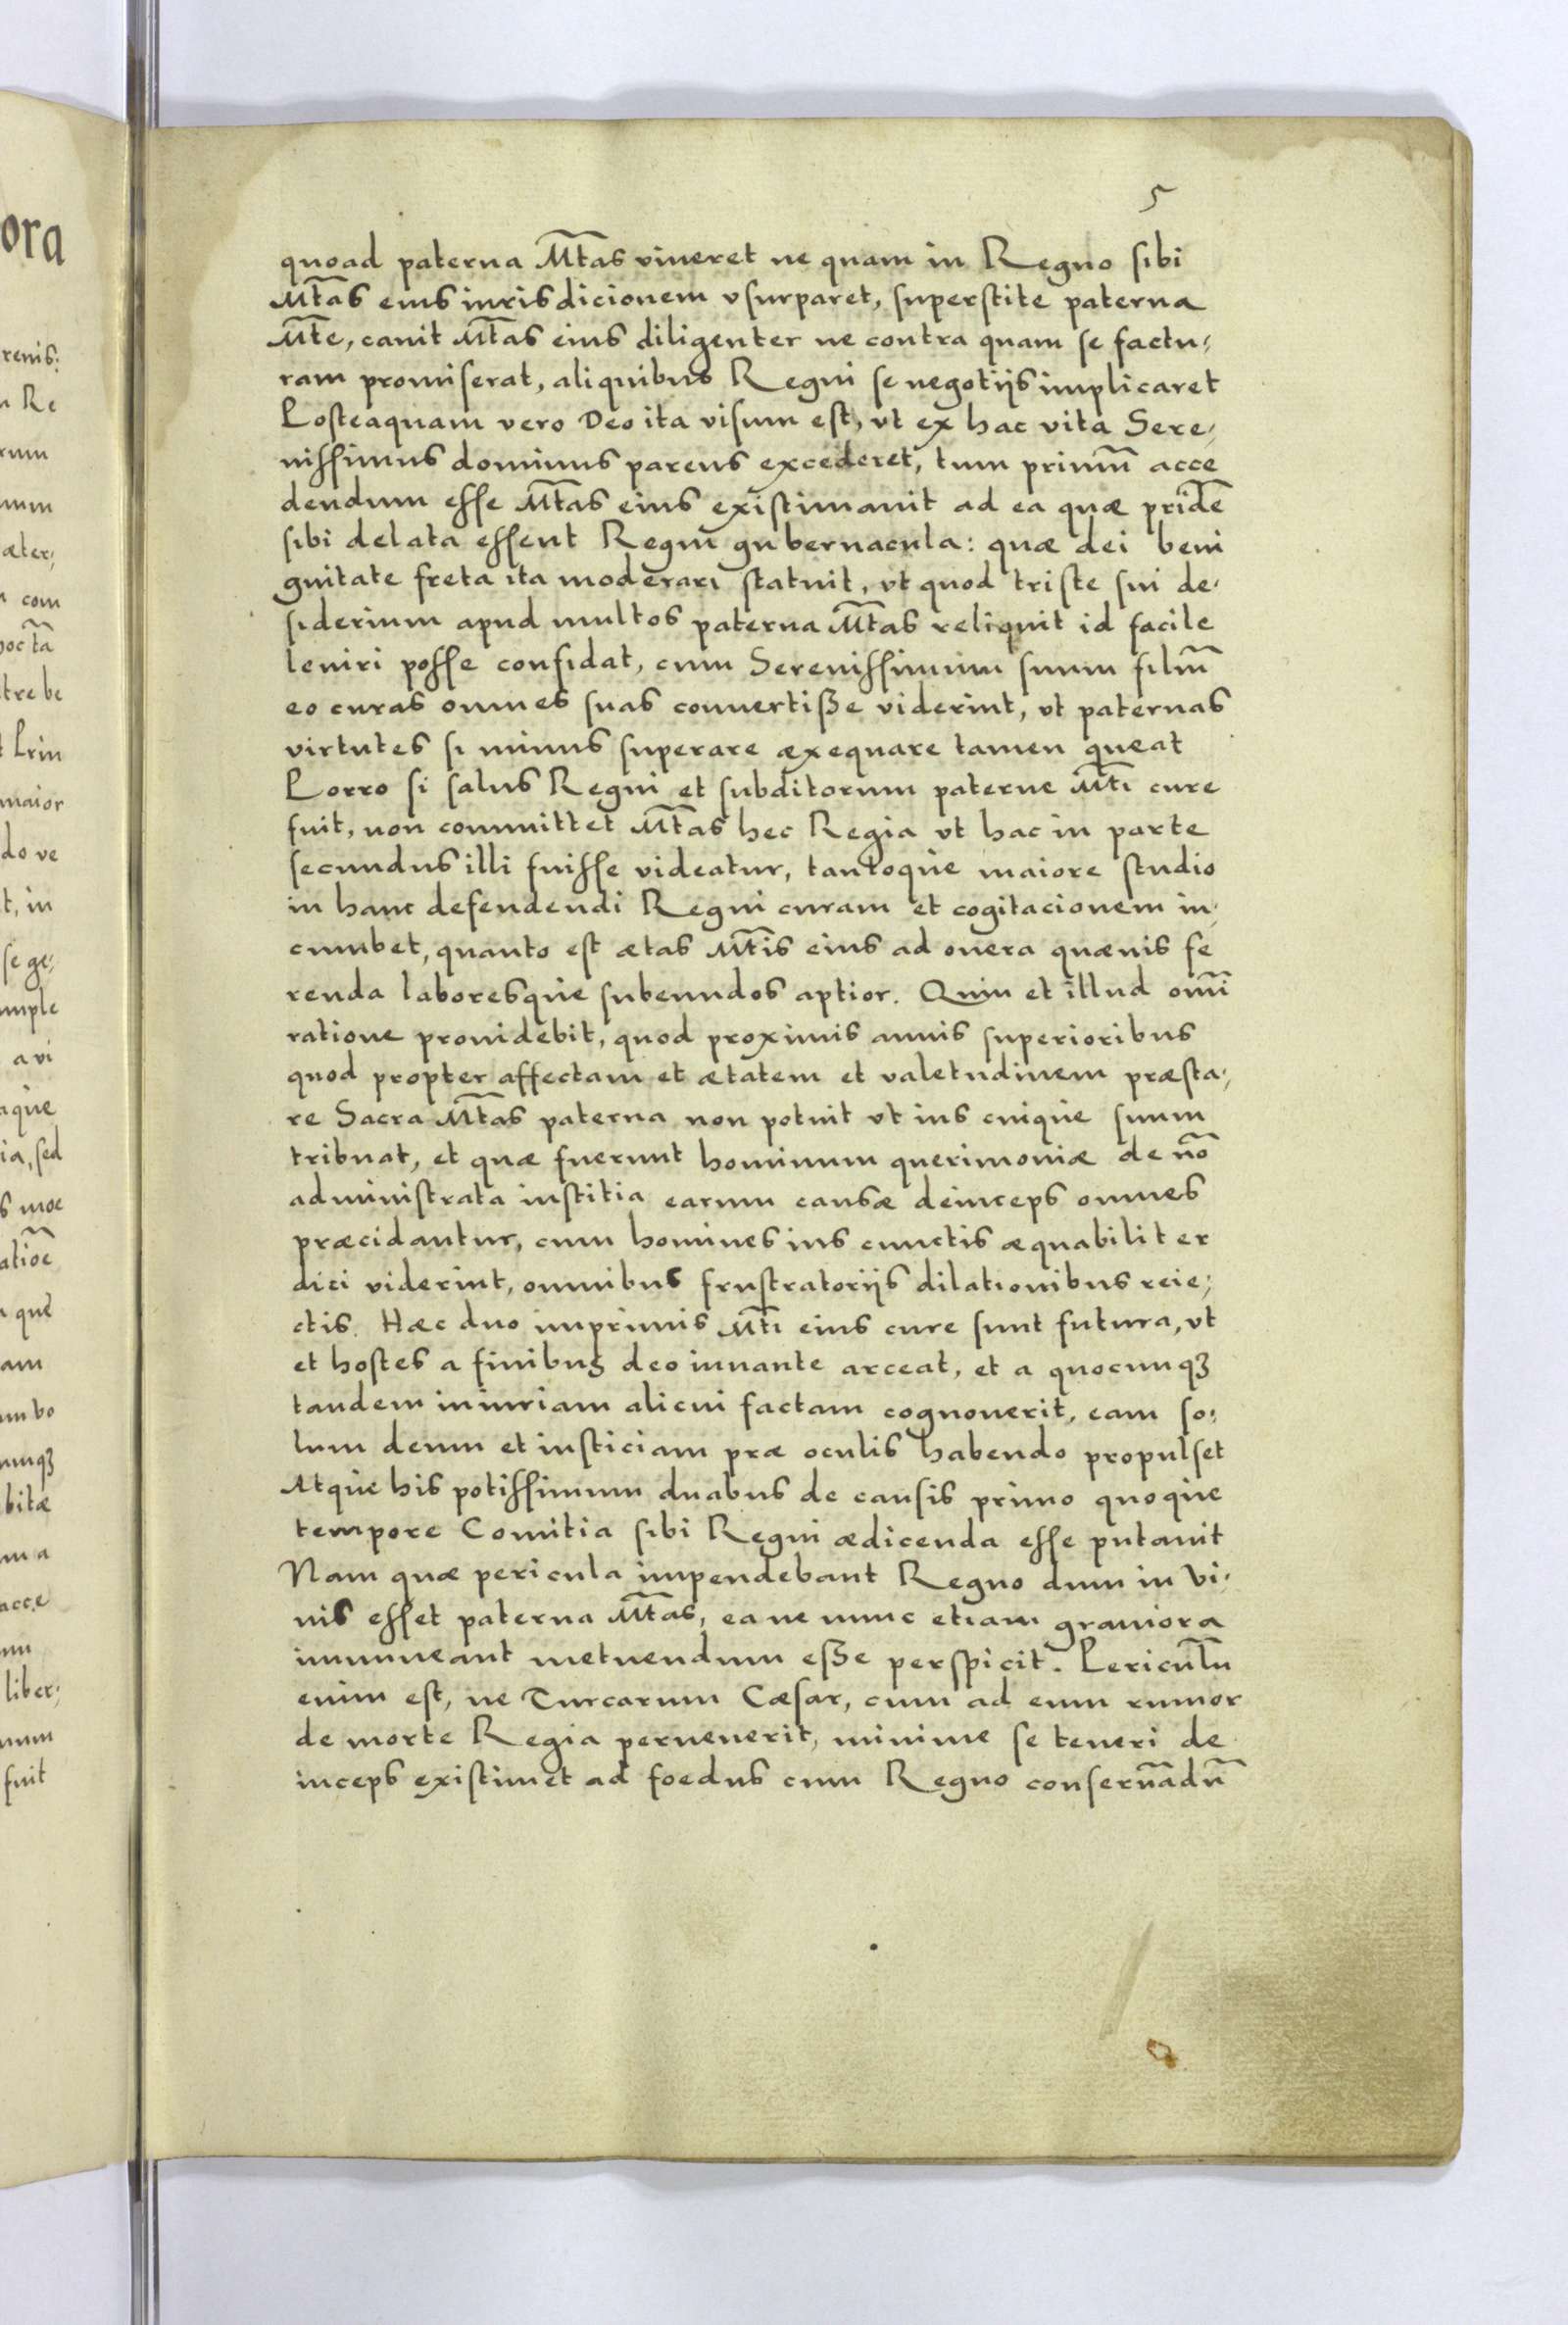 5
quoad paterna Mt̃as viueret ne quam in Regno sibi
Mt̃as eius iurisdicionem vsurparet, superstite paterna
Mt̃e, cauit Mt̃as eius diligenter ne contra quam se factu;
ram promiserat, aliquibus Regni se negotijs implicaret
Posteaquam vero Deo ita visum est, vt ex hac vita Sere;
nissimus dominus parens excederet, tum primũ acce
dendum esse Mt̃as eius existimauit ad ea quæ pridẽ
sibi delata essent Regni gubernacula: quæ dei beni
gnitate freta ita moderari statuit, vt quod triste sui de;
siderium apud multos paterna Mt̃as reliquit id facile
leniri posse confidat, cum Serenissimum suum filiũ
eo curas omnes suas conuertiße viderint, vt paternas
virtutes si minus superare æxequare tamen queat
Porro si salus Regni et subditorum paterne Mt̃i cure
fuit, non committet Mt̃as hec Regia vt hac in parte
secundus illi fuisse videatur, tantoque maiore studio
in hanc defendendi Regni curam et cogitacionem in;
cumbet, quanto est ætas Mt̃is eius ad onera quæuis fe
renda laboresque subeundos aptior. Quin et illud omĩ
ratione prouidebit, quod proximis annis superioribus
quod propter affectam et ætatem et valetudinem præsta;
re Sacra Mt̃as paterna non potuit vt ius cuique suum
tribuat, et quæ fuerunt hominum querimoniæ de nõ
administrata iustitia earum causæ deinceps omnes
præcidantur, cum homines ius cunctis æquabiliter
dici viderint, omnibus frustratorijs dilationibus reie;
ctis. Hæc duo imprimis Mt̃i eius cure sunt futura, vt
et hostes a finibus deo iuuante arceat, et a quocunqꝫ
tandem iniuriam alicui factam cognouerit, eam so;
lum deum et iusticiam præ oculis habendo propulset
Atque his potissimum duabus de causis primo quoque
tempore Comitia sibi Regni ædicenda esse putauit
Nam quæ pericula impendebant Regno dum in vi;
uis esset paterna Mt̃as, ea ne nunc etiam grauiora
immineant metuendum eße perspicit. Pericul̃u
enim est, ne Turcarum Cæsar, cum ad eum rumor
de morte Regia peruenerit, minime se teneri de
inceps existimet ad foedus cum Regno conseruãdũ
ora
renis:
n Re
rum
num
æter;
n com
hoc tã
tre be
t Prin
maior
do ve
t, in
se ge;
mple
a vi
aque
ia, sed
s moe
atiõe
n que
am
um bo
umqꝫ
bitæ
m a
acce
liber;
num
fuit